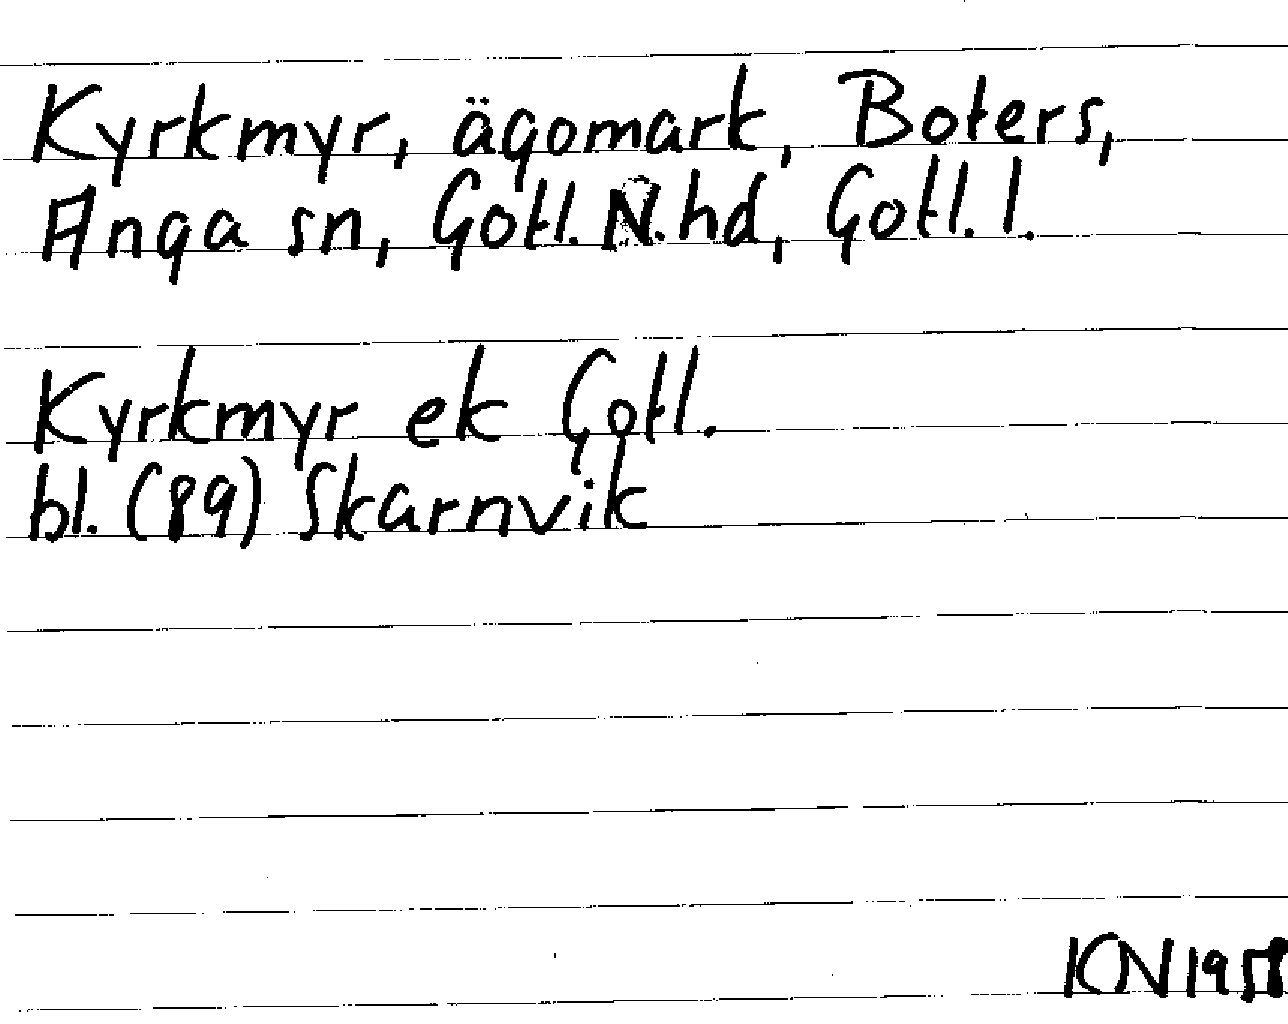 Kyrkmyr, ägomark, Boters,
Anga sn, Gotl. N. hd, Gotl. l.
Kyrkmyr ek Gotl.
bl. (89) Skarnvik
KN 1958